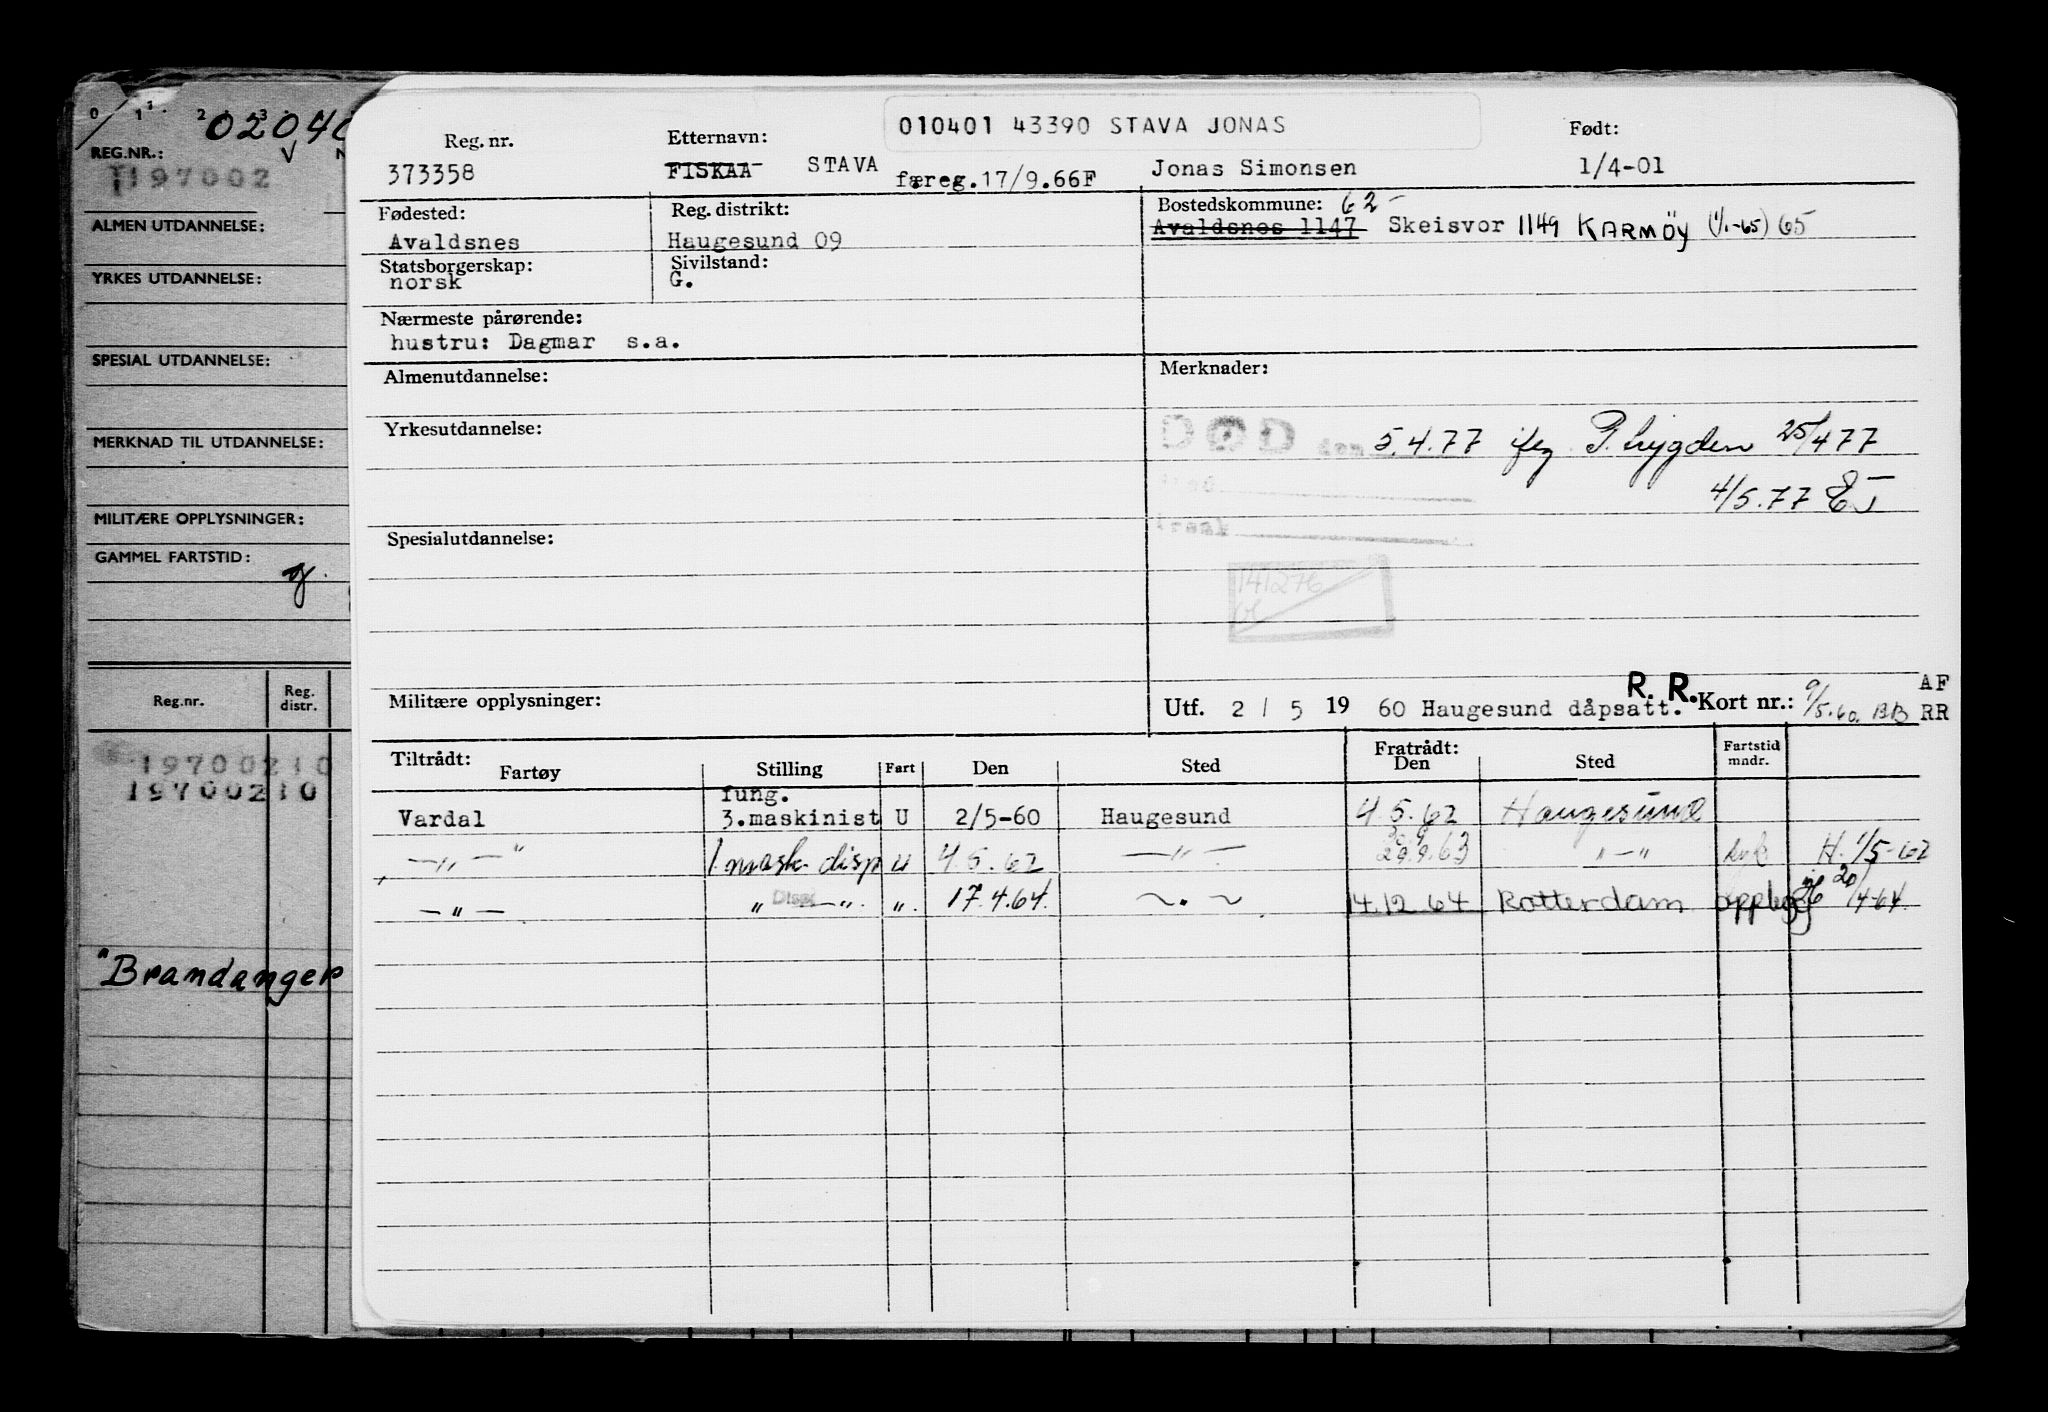 0 1 2 3
02040
REG.NR.:
T197002
ALMEN UTDANNELSE:
YRKES UTDANNELSE:
SPESIAL UTDANNELSE:
MERKNAD TIL UTDANNELSE:
MILITÆRE OPPLYSNINGER:
GAMMEL FARTSTID:
g.
Reg.nr. Reg. distr.
19700210
19700210
"Brandanger
010401 43390 STAVA JONAS
Reg. nr. Etternavn: Født:
373358 FISKAA STAVA færeg.17/9.66F Jonas Simonsen 1/4-01
Fødested: Reg. distrikt: Bostedskommune: 62-
Avaldsnes Haugesund 09 Avaldsnes 1147 Skeisvor 1149 KARMÖY (1/1-65) 65
Statsborgerskap: Sivilstand:
norsk G.
Nærmeste pårørende:
hustru: Dagmar s.a.
Almenutdannelse: Merknader:
Yrkesutdannelse:
DØD den 5.4.77 P. Lygden 25/4 77
4/5.77
Spesialutdannelse:
141276
Militære opplysninger:
R. R.
Utf. 2 / 5 19 60 Haugesund dåpsatt. Kort nr.: 9/5.60. BB AF RR
Tiltrådt: Fratrådt: Fartstid
Fartøy Stilling Fart Den Sted Den Sted mndr.
fung.
Vardal 3.maskinist U 2/5-60 Haugesund 4.5.62 Haugesund
—"— 1. mask. disp U 4.5.62 —"— 29.9.63 "—" H. 1/5-62
—"— " Disp —". ". 17.4.64. ~"~ 14.12.64 Rotterdam opplegg 20/4-64.